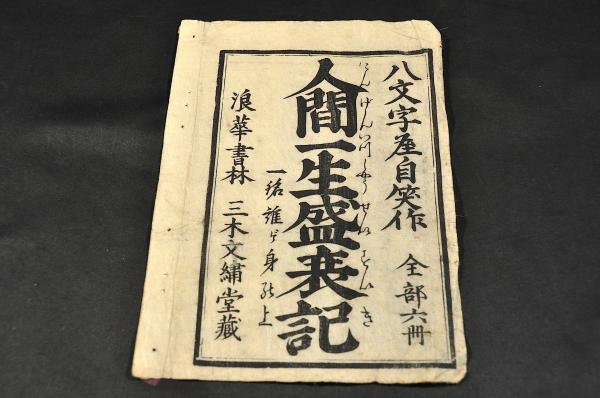 八文字屋自笑作　全部六冊
人間一生盛衰記
にんげんいつしやうせいすいき
一名誰が身の上
浪華書林　三木文繍堂藏